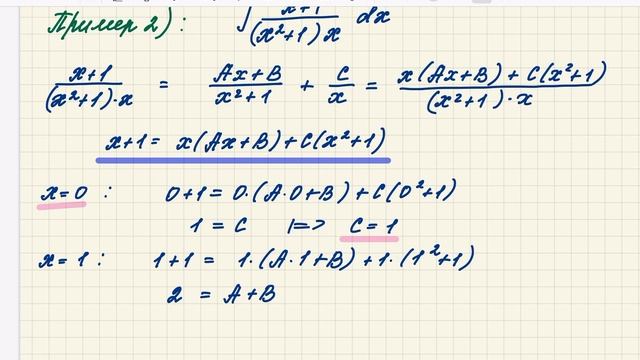 Пример 2): ∫ x+1/(x²+1)x dx
x+1/(x²+1)·x = Ax+B/x²+1 + C/x = x(Ax+B)+C(x²+1)/(x²+1)·x
x+1 = x(Ax+B)+C(x²+1)
x=0 : 0+1=0·(A·0+B)+C(0²+1)
1 = C |=> C=1
x=1 : 1+1= 1·(A·1+B)+1·(1²+1)
2 = A+B